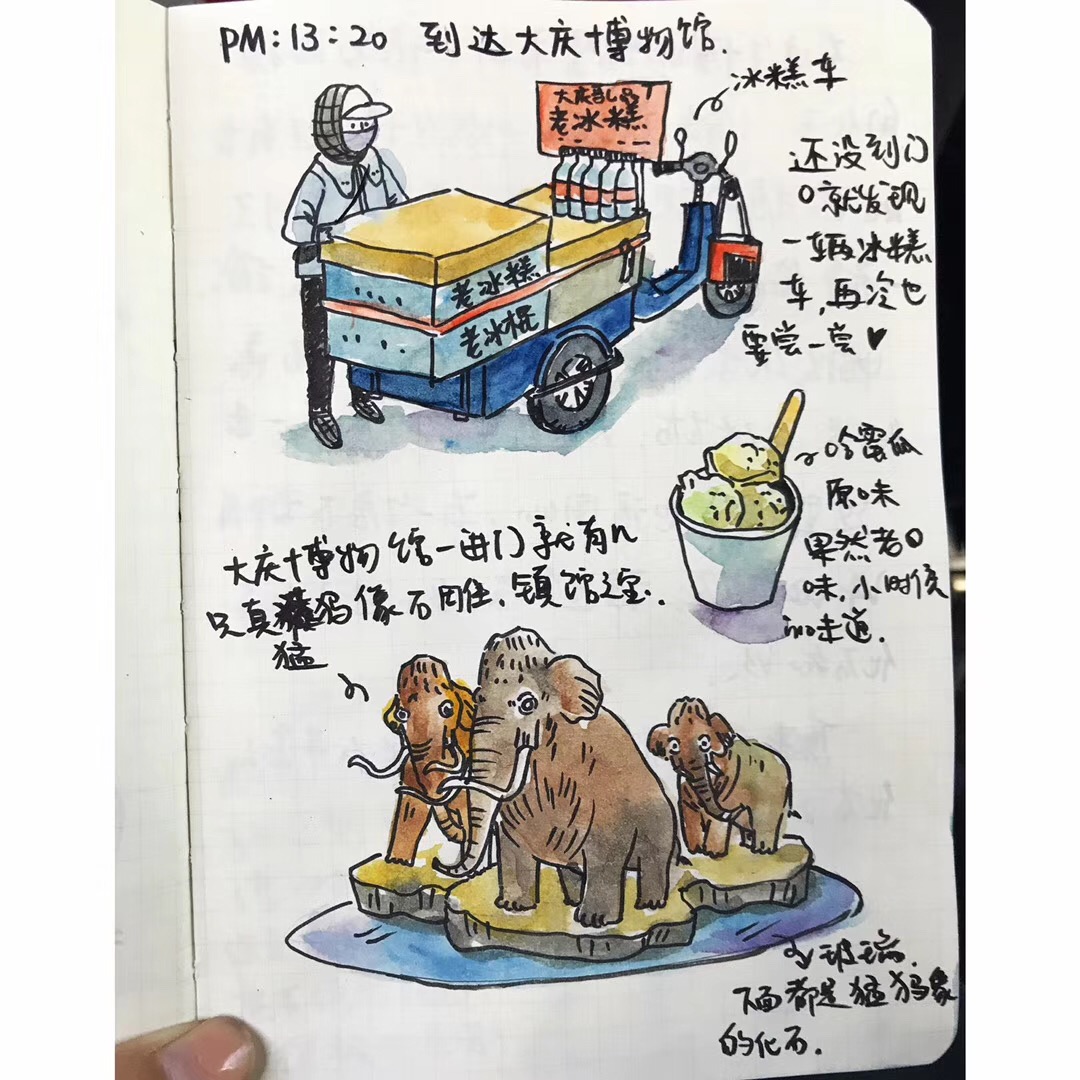 PM:13:20 到达大庆博物馆.
冰糕车
大庆乳品
老冰糕
还没到门
口就发现
一辆冰糕
车,再冷也
要尝一尝♥
老冰糕
老冰棍
哈蜜瓜
原味
果然老口
味,小时候
的味道.
大庆博物馆一进门就有几
只真猛犸像石雕、镇馆之宝.
玻璃.
下面都是猛犸象
的化石.